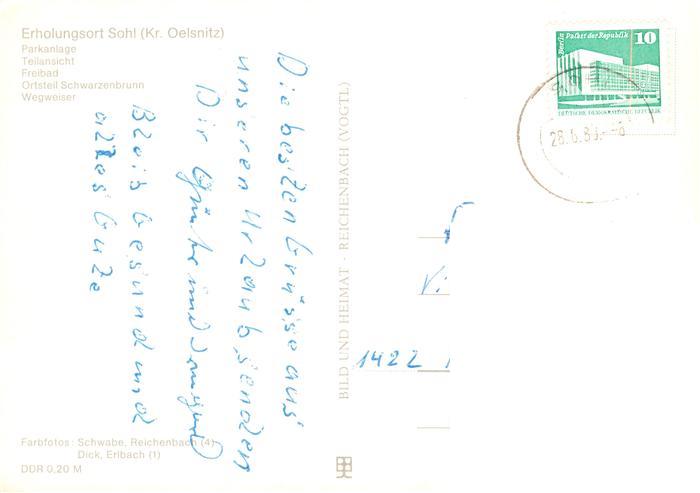 Erholungsort Sohl (Kr. Oelsnitz)
Parkanlage
Teilansicht
Freibad
Ortsteil Schwarzenbrunn
Wegweiser
Die besten Grüsse aus
unseren Urlaub senden
Dir Günter und
Bleib gesund und
alles Gute
BILD UND HEIMAT · REICHENBACH (VOGTL)
Berlin Palast der Republik 10
DEUTSCHE DEMOKRATISCHE REPUBLIK
28.6.8
1422
Farbfotos: Schwabe, Reichenbach (4)
Dick, Erlbach (1)
DDR 0,20 M